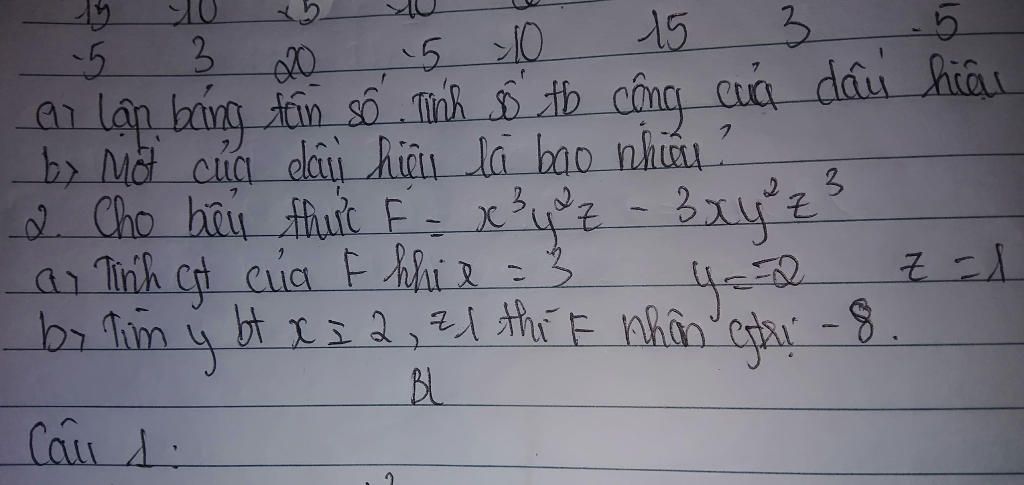 -5 3 20 -5 -10 15 3 -5
a, lập bảng tần số. Tính số tb cộng của dấu hiệu
b, Mốt của dấu hiệu là bao nhiêu?
2. Cho biểu thức F = x³y²z - 3xy²z³
a, Tính gt của F khi x = 3 y = -2 z = 1
b, Tìm y bt x = 2, z1 thì F nhận gtrị -8.
BL
Câu 1: